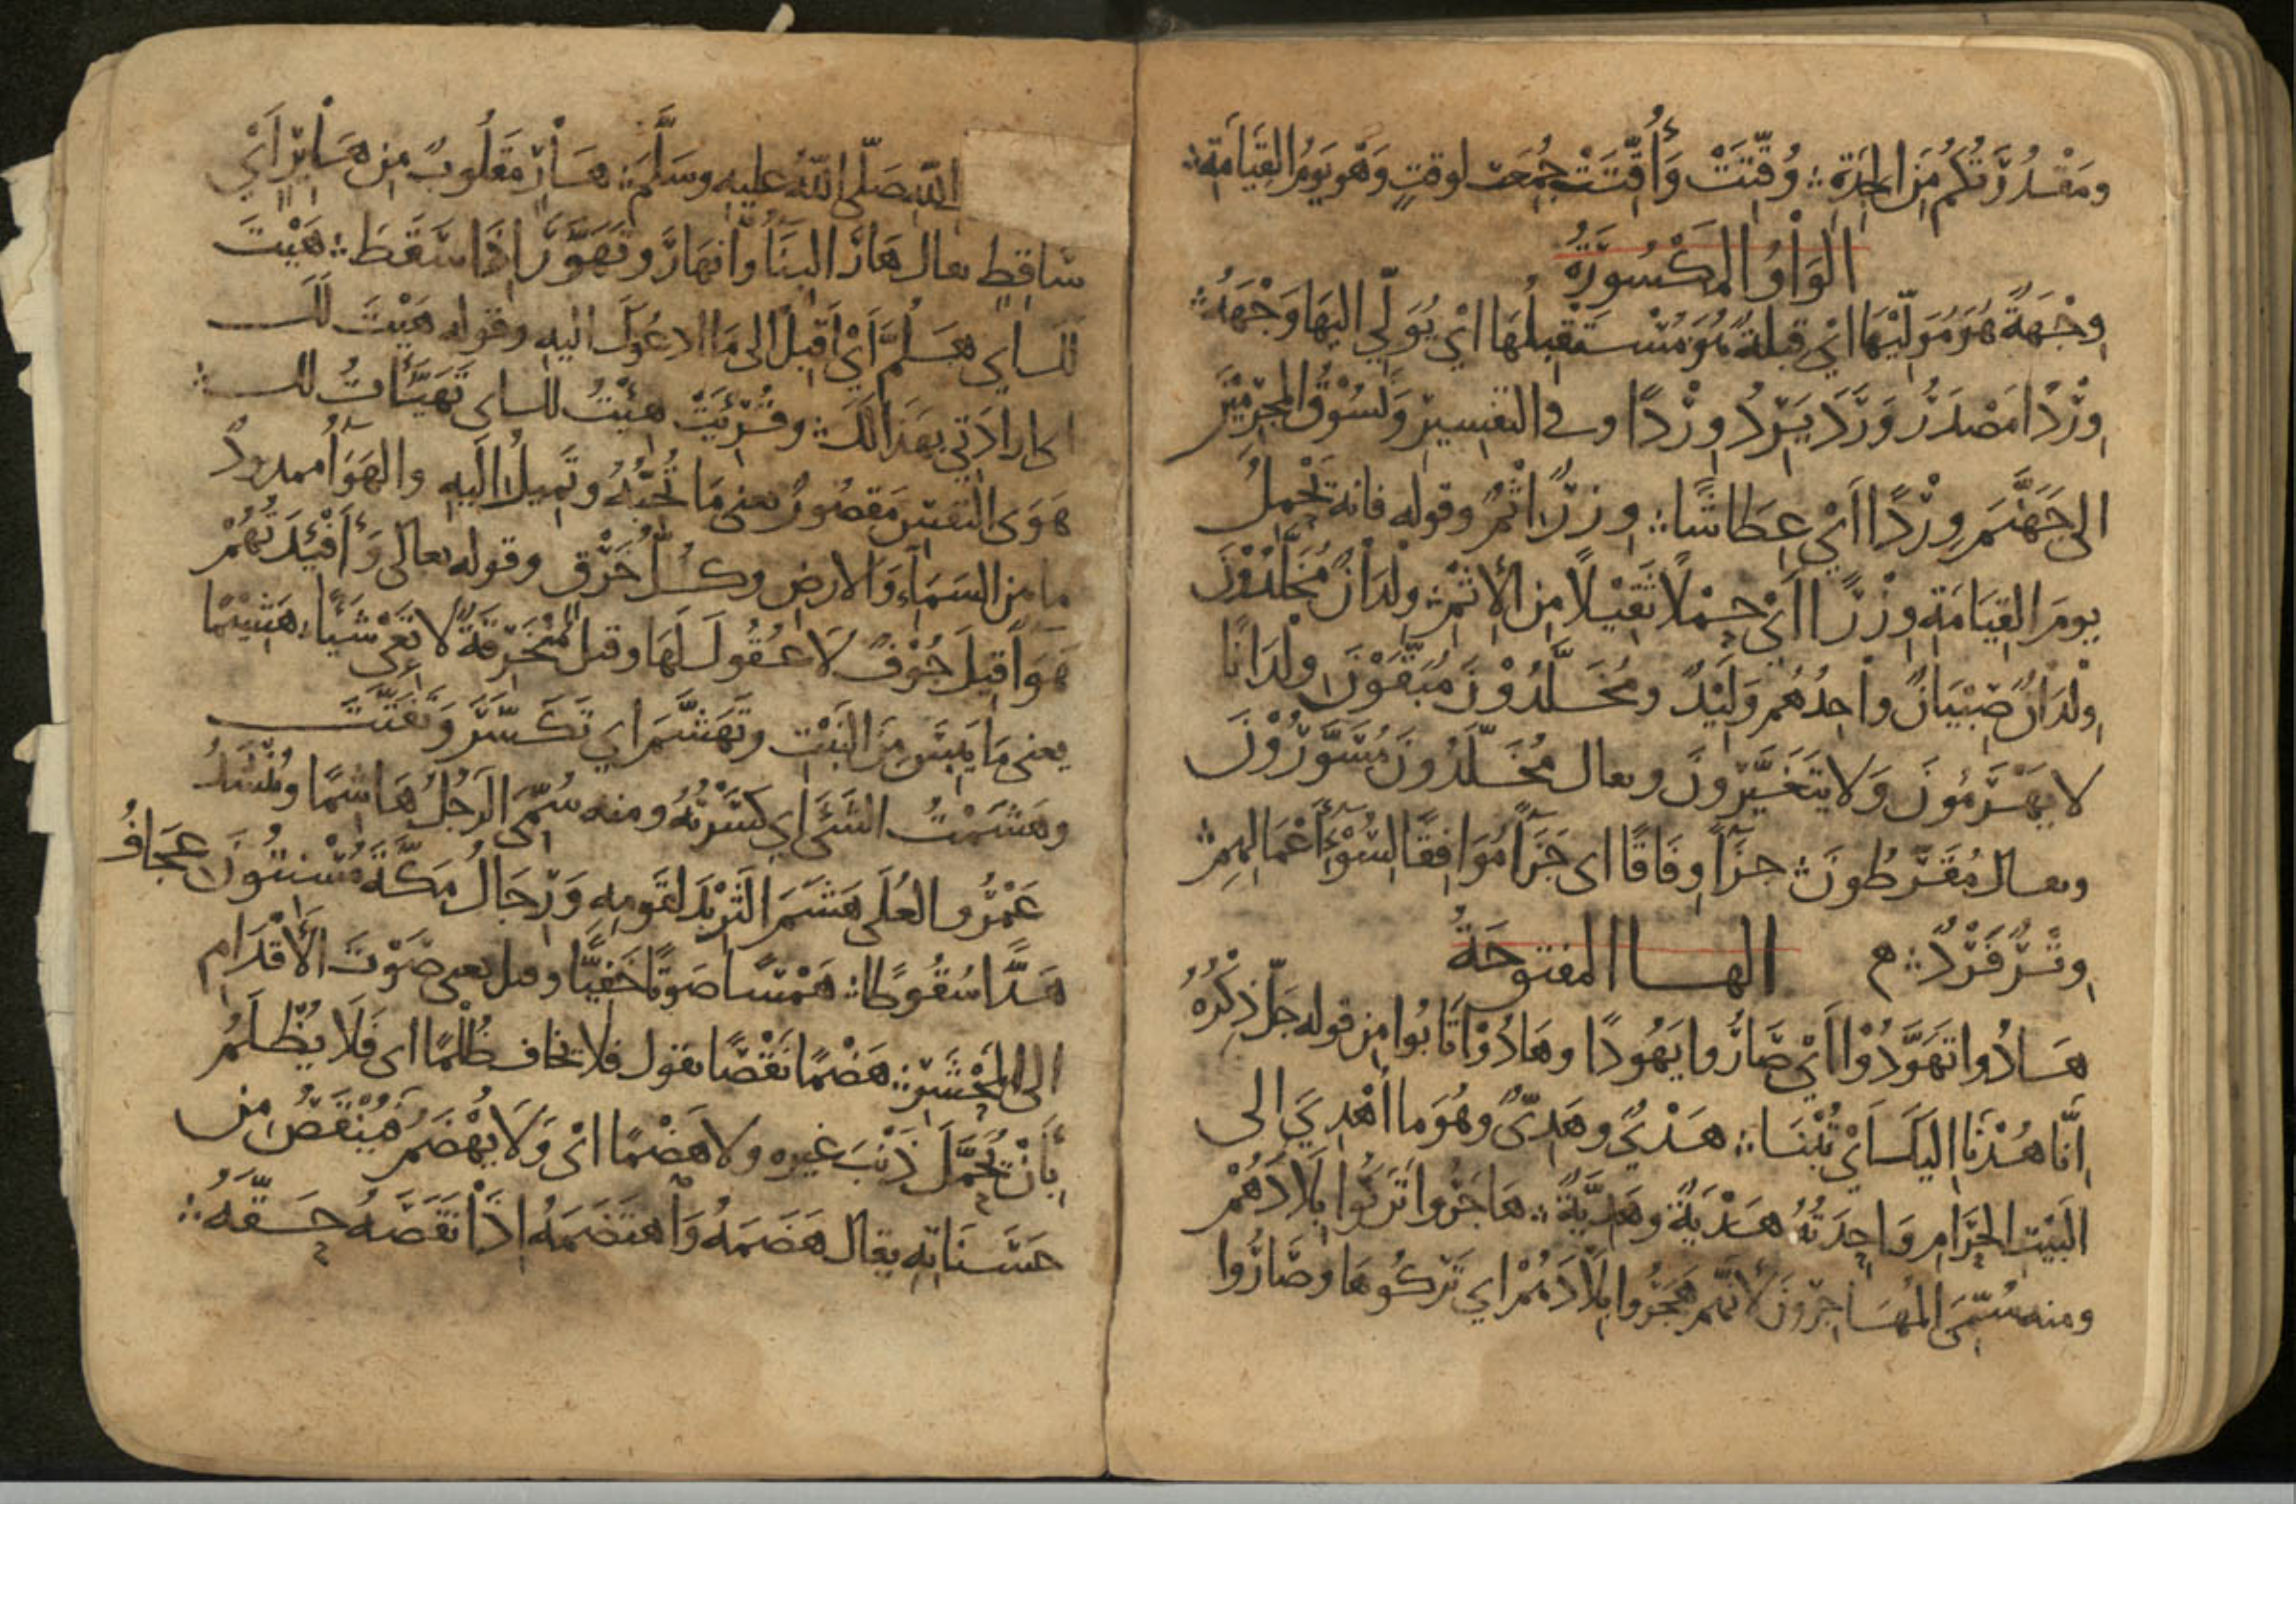 ومَقْدُرَتكُم مِّنَ الجِدَةِ ؞ وُقِّتَتْ وَأُقِّتَتْ جُمِعَت لوقتٍ وَهْوَ يَومُ القِيَامَةِ ؞
الوَاوُ المكْسُورَةُ
وِجْهَةٌ هُوَ مُوَلِّيْهَا اَيْ قِبلةٌ هُوَ مُسْتَقبِلُهَا اَيْ يُوَلِّي اليهَا وَجْهَهُ ؞
وِرْدًا مَصْدَرُ وَرَدَ يَرِدُ وِرْدًا وفي التفسير وَنَسُوْقُ المُجرِمِيْنَ
الى جَهَنَّمَ وِرْدًا اَيْ عِطَاشًا ؞ وِزرًا اثْمٌ وقوله فانه تَحْمِلُ
يومَ القِيَامَةِ وِزْرًا اَيْ حِمْلًا ثَقِيْلًا مِن الإثْمِ ؞ وِلْدَانٌ مُخَلَّدُوْنَ
وِلْدَانٌ صِبْيَانٌ وَاحِدُهُم وَلِيْدٌ ومُخَلَّدُوْنَ مُبَقَّوْنَ وِلْدَانًا
لا يَهْرَمُونَ وَلا يَتَغَيَّرونَ ويقال مُخَلَّدُونَ مُسَوَّرُوْنَ
ويقال مُقَرَّطُونَ ؞ جزآءً وِفَاقًا اي جَزَآءً مُوَافِقًا لسُوْءِ أَعْمَالِهِمْ ؞
وِتْرٌ فَرْدٌ ؞ م الهــا المفتوحَةُ
هَادُوا تَهَوَّدُوْا اَيْ صَارُوا يَهُودًا وهَادُوْا تَابُوا مِن قوله جَلّ ذِكْرُهُ
اِنَّا هُدْنَا اليكَ اَيْ تُبْنَا ؞ هَدْيٌ وهَدِيٌّ وهُوَ ما اُهْدِيَ الى
البَيْتِ الحَرَامِ وَاحِدَتُهُ هَدْيَةٌ وهَدِيَّةٌ ؞ هَاجَرُوا تَرَكُوا بِلَادَهُمْ
ومنه سُمِّيَ المُهَاجِرُونَ لأنَّهم هَجَرُوا بِلَادَهُمْ اي تَرَكُوهَا وصَارُوا
اللهِ صَلَّى اللهُ عليهِ وسَلَّمَ ؞ هَارٍ مَقلُوبٌ مِن هَايِرٍ اَيْ
سَاقِطٍ يقال هَارَ البِنَاءُ وانهَارَ وتَهَوَّرَ اِذَا سَقَطَ ؞ هَيْتَ
لك اي هَلُمَّ اَيْ اَقْبِلْ الى مَا ادعُوكَ اليهِ وقوله هَيْتَ لَكَ
اي اِرادَتي بهَذا لَكَ ؞ وقُرِئَتْ هِئْتُ لك اي تَهَيَّأتُ لك ؞
هَوَى النفسِ مَقصُورٌ يعني مَا تُحِبُّهُ وتَمِيلُ اليهِ والهَوَآءُ ممدودٌ
ما بين السَمَآءِ وَالارضِ وكُلُّ خَرْقٍ وقوله تعالى وَأَفْئِدَتُهُمْ
هَوَآءٌ قِيلَ جُوْفٌ لَا عُقُولَ لَهَا وقيل مُنْخَرِقَةٌ لا تَعِي شَيْأً ؞ هَشِيْمًا
يعني مَا يَبِسَ مِنَ النَبْتِ وتَهَشَّمَ اي تَكَسَّرَ وَتَفَتَّتَ
وهَشَمْتُ الشَيْءَ اي كَسَرْتُهُ ومنه سُمِّيَ الرَجُلُ هَاشِمًا ويُنْشَدُ
عَمْرُو العُلَى هَشَمَ الثَرِيْدَ لقَومِهِ وَرِجَالُ مَكَّةَ مُسْنِتُونَ عِجَافُ
هَدًّا سُقُوطًا ؞ هَمْسًا صَوتًا خَفِيًّا وقيل يعني صَوْتَ الأَقْدَامِ
الى المَحْشَرِ ؞ هَضْمًا نَقْصًا يقول فلا يخاف ظُلْمًا اي فَلَا يُظْلَمُ
بِأَنْ يُحَمَّلَ ذَنْبَ غيره ولا هَضْمًا اَيْ وَلَا يُهْضَمُ فيُنْقَصُ مِن
حَسَنَاتِهِ يقال هَضَمَهُ وَاهتَضَمَهُ اِذَا نَقَصَهُ حَقَّهُ ؞